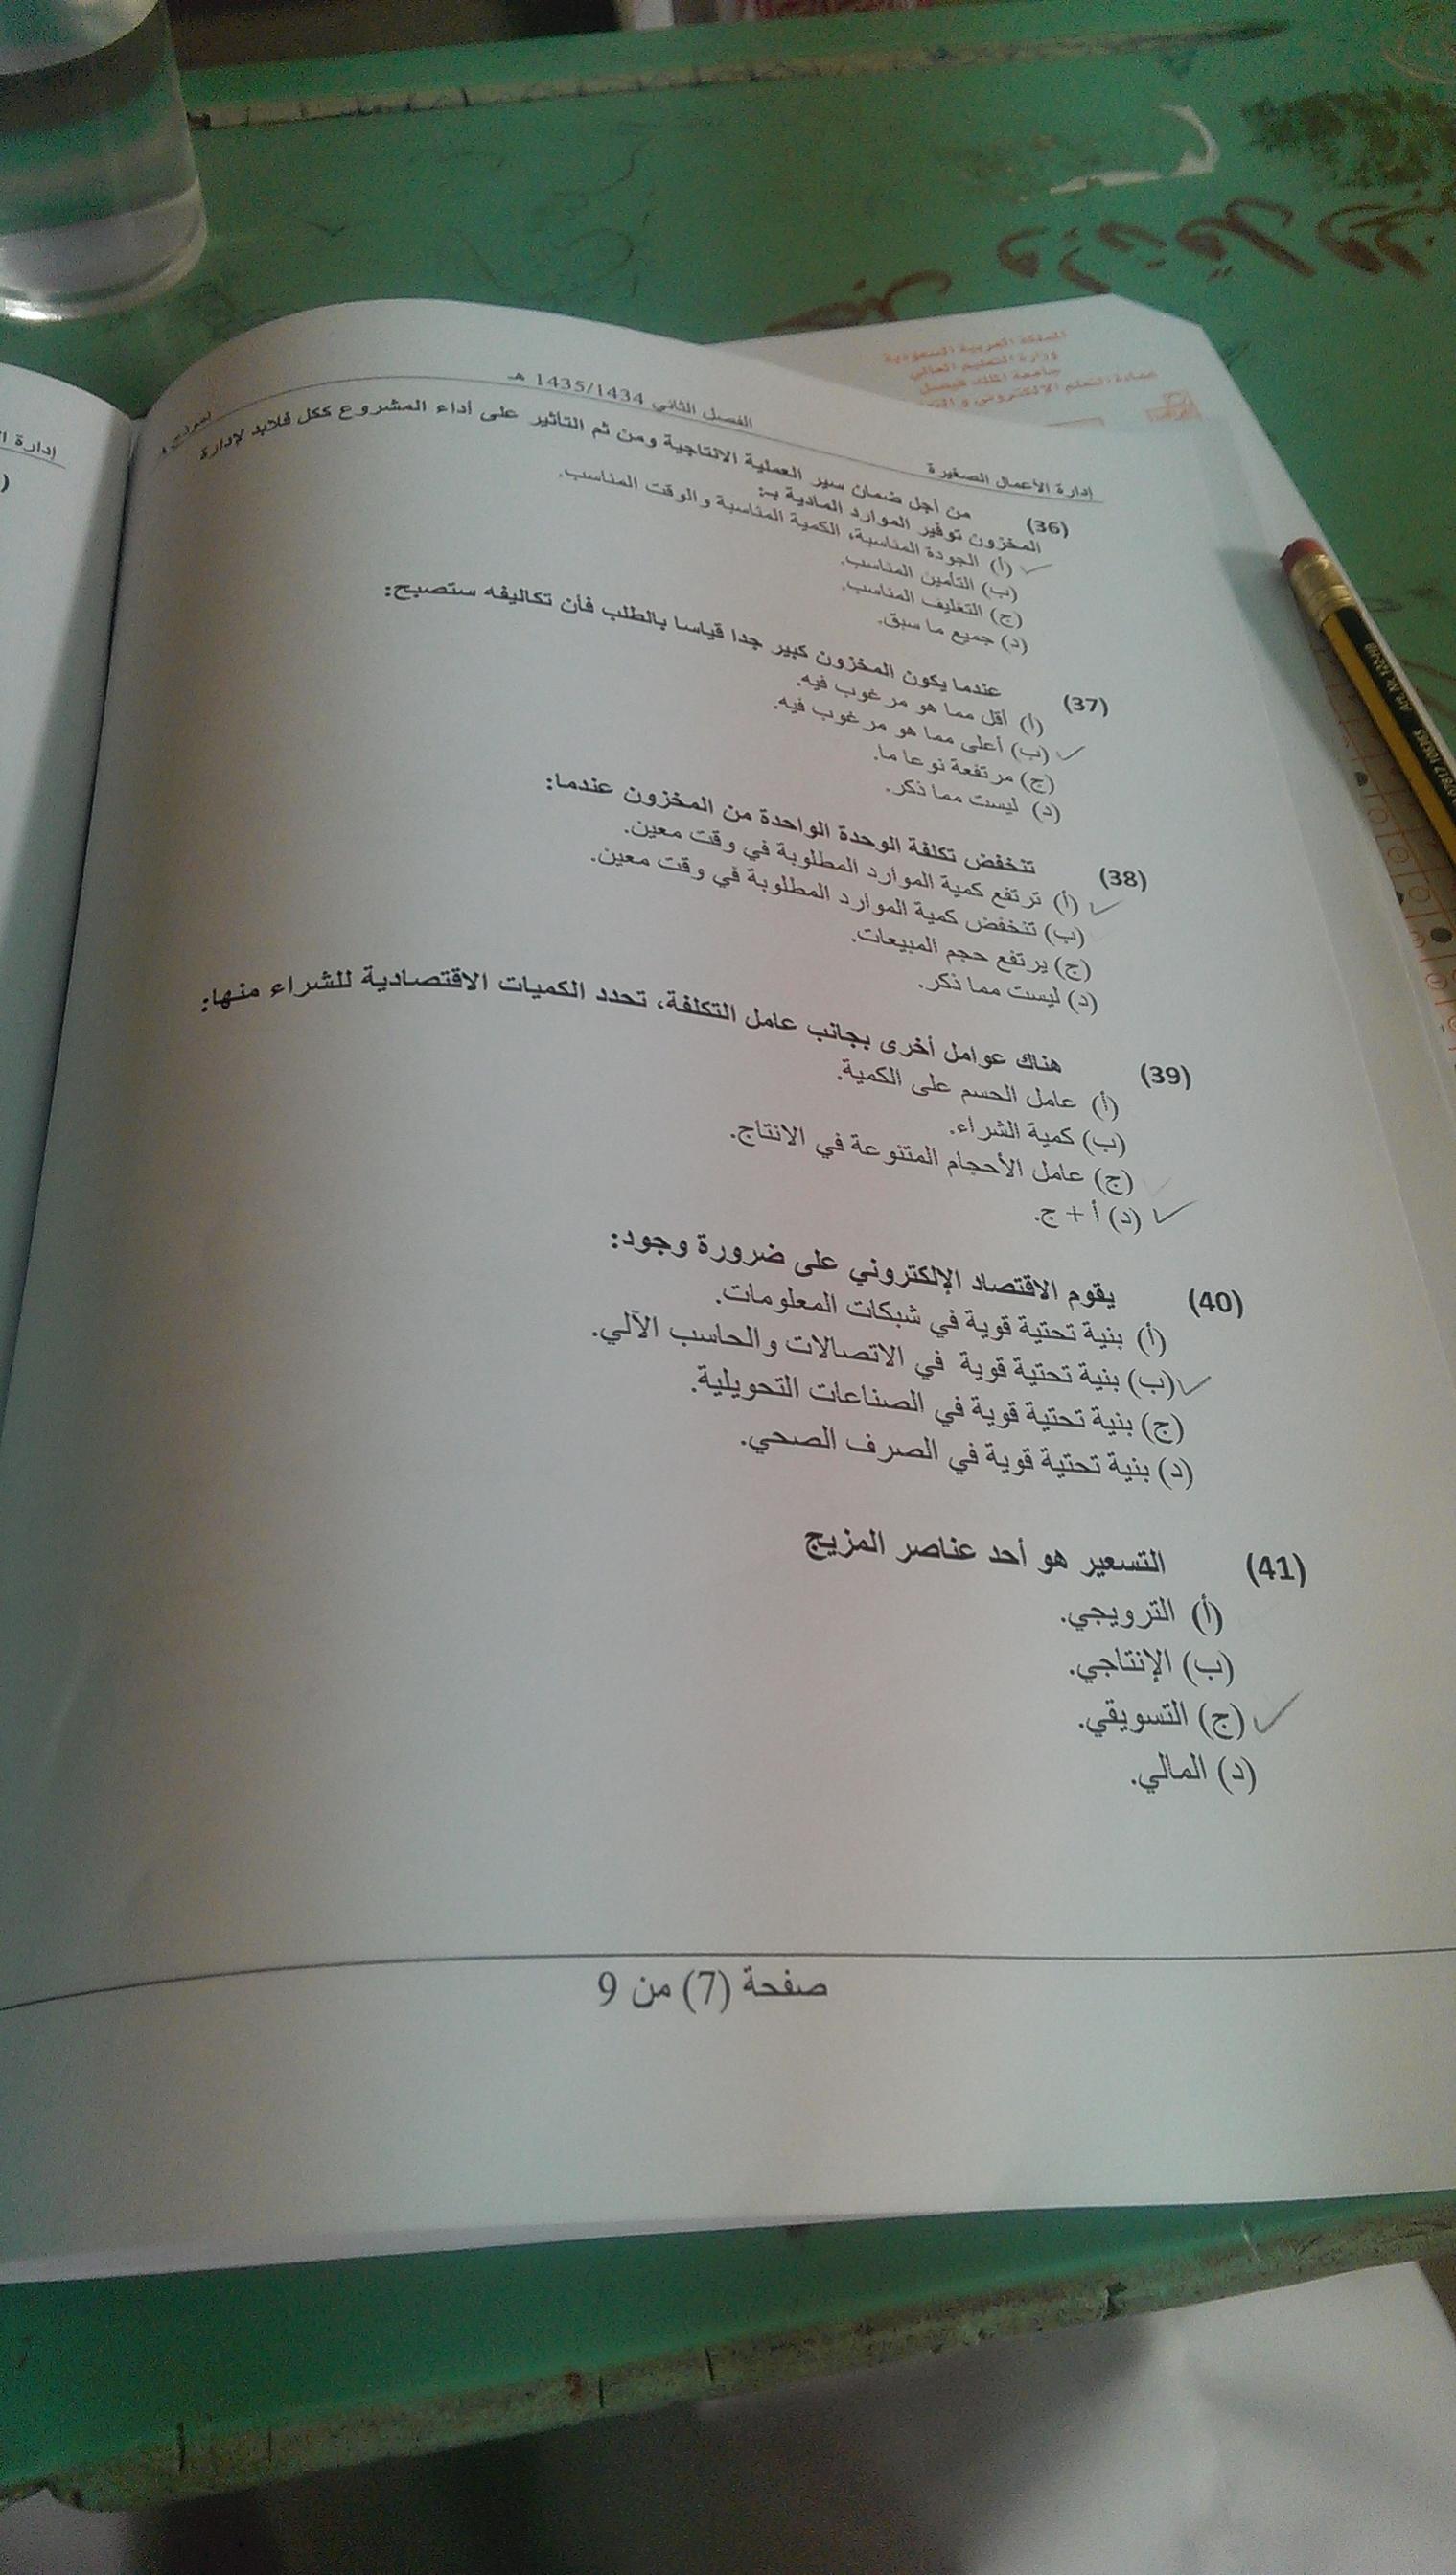 المملكة العربية السعودية
وزارة التعليم العالي
جامعة الملك فيصل
عمادة التعلم الإلكتروني و
إدارة الأعمال الصغيرة
الفصل الثاني 1435/1434 هـ
(36) من أجل ضمان سير العملية الانتاجية ومن ثم التأثير على أداء المشروع ككل فلابد لإدارة
المخزون توفير الموارد المادية بـ:
(أ) الجودة المناسبة، الكمية المناسبة والوقت المناسب.
(ب) التأمين المناسب.
(ج) التغليف المناسب.
(د) جميع ما سبق.
(37) عندما يكون المخزون كبير جدا قياسا بالطلب فأن تكاليفه ستصبح:
(أ) أقل مما هو مرغوب فيه.
(ب) أعلى مما هو مرغوب فيه.
(ج) مرتفعة نوعا ما.
(د) ليست مما ذكر.
(38) تنخفض تكلفة الوحدة الواحدة من المخزون عندما:
(أ) ترتفع كمية الموارد المطلوبة في وقت معين.
(ب) تنخفض كمية الموارد المطلوبة في وقت معين.
(ج) يرتفع حجم المبيعات.
(د) ليست مما ذكر.
(39) هناك عوامل أخرى بجانب عامل التكلفة، تحدد الكميات الاقتصادية للشراء منها:
(أ) عامل الحسم على الكمية.
(ب) كمية الشراء.
(ج) عامل الأحجام المتنوعة في الانتاج.
(د) أ + ج.
(40) يقوم الاقتصاد الإلكتروني على ضرورة وجود:
(أ) بنية تحتية قوية في شبكات المعلومات.
(ب) بنية تحتية قوية في الاتصالات والحاسب الآلي.
(ج) بنية تحتية قوية في الصناعات التحويلية.
(د) بنية تحتية قوية في الصرف الصحي.
(41) التسعير هو أحد عناصر المزيج
(أ) الترويجي.
(ب) الإنتاجي.
(ج) التسويقي.
(د) المالي.
صفحة (7) من 9